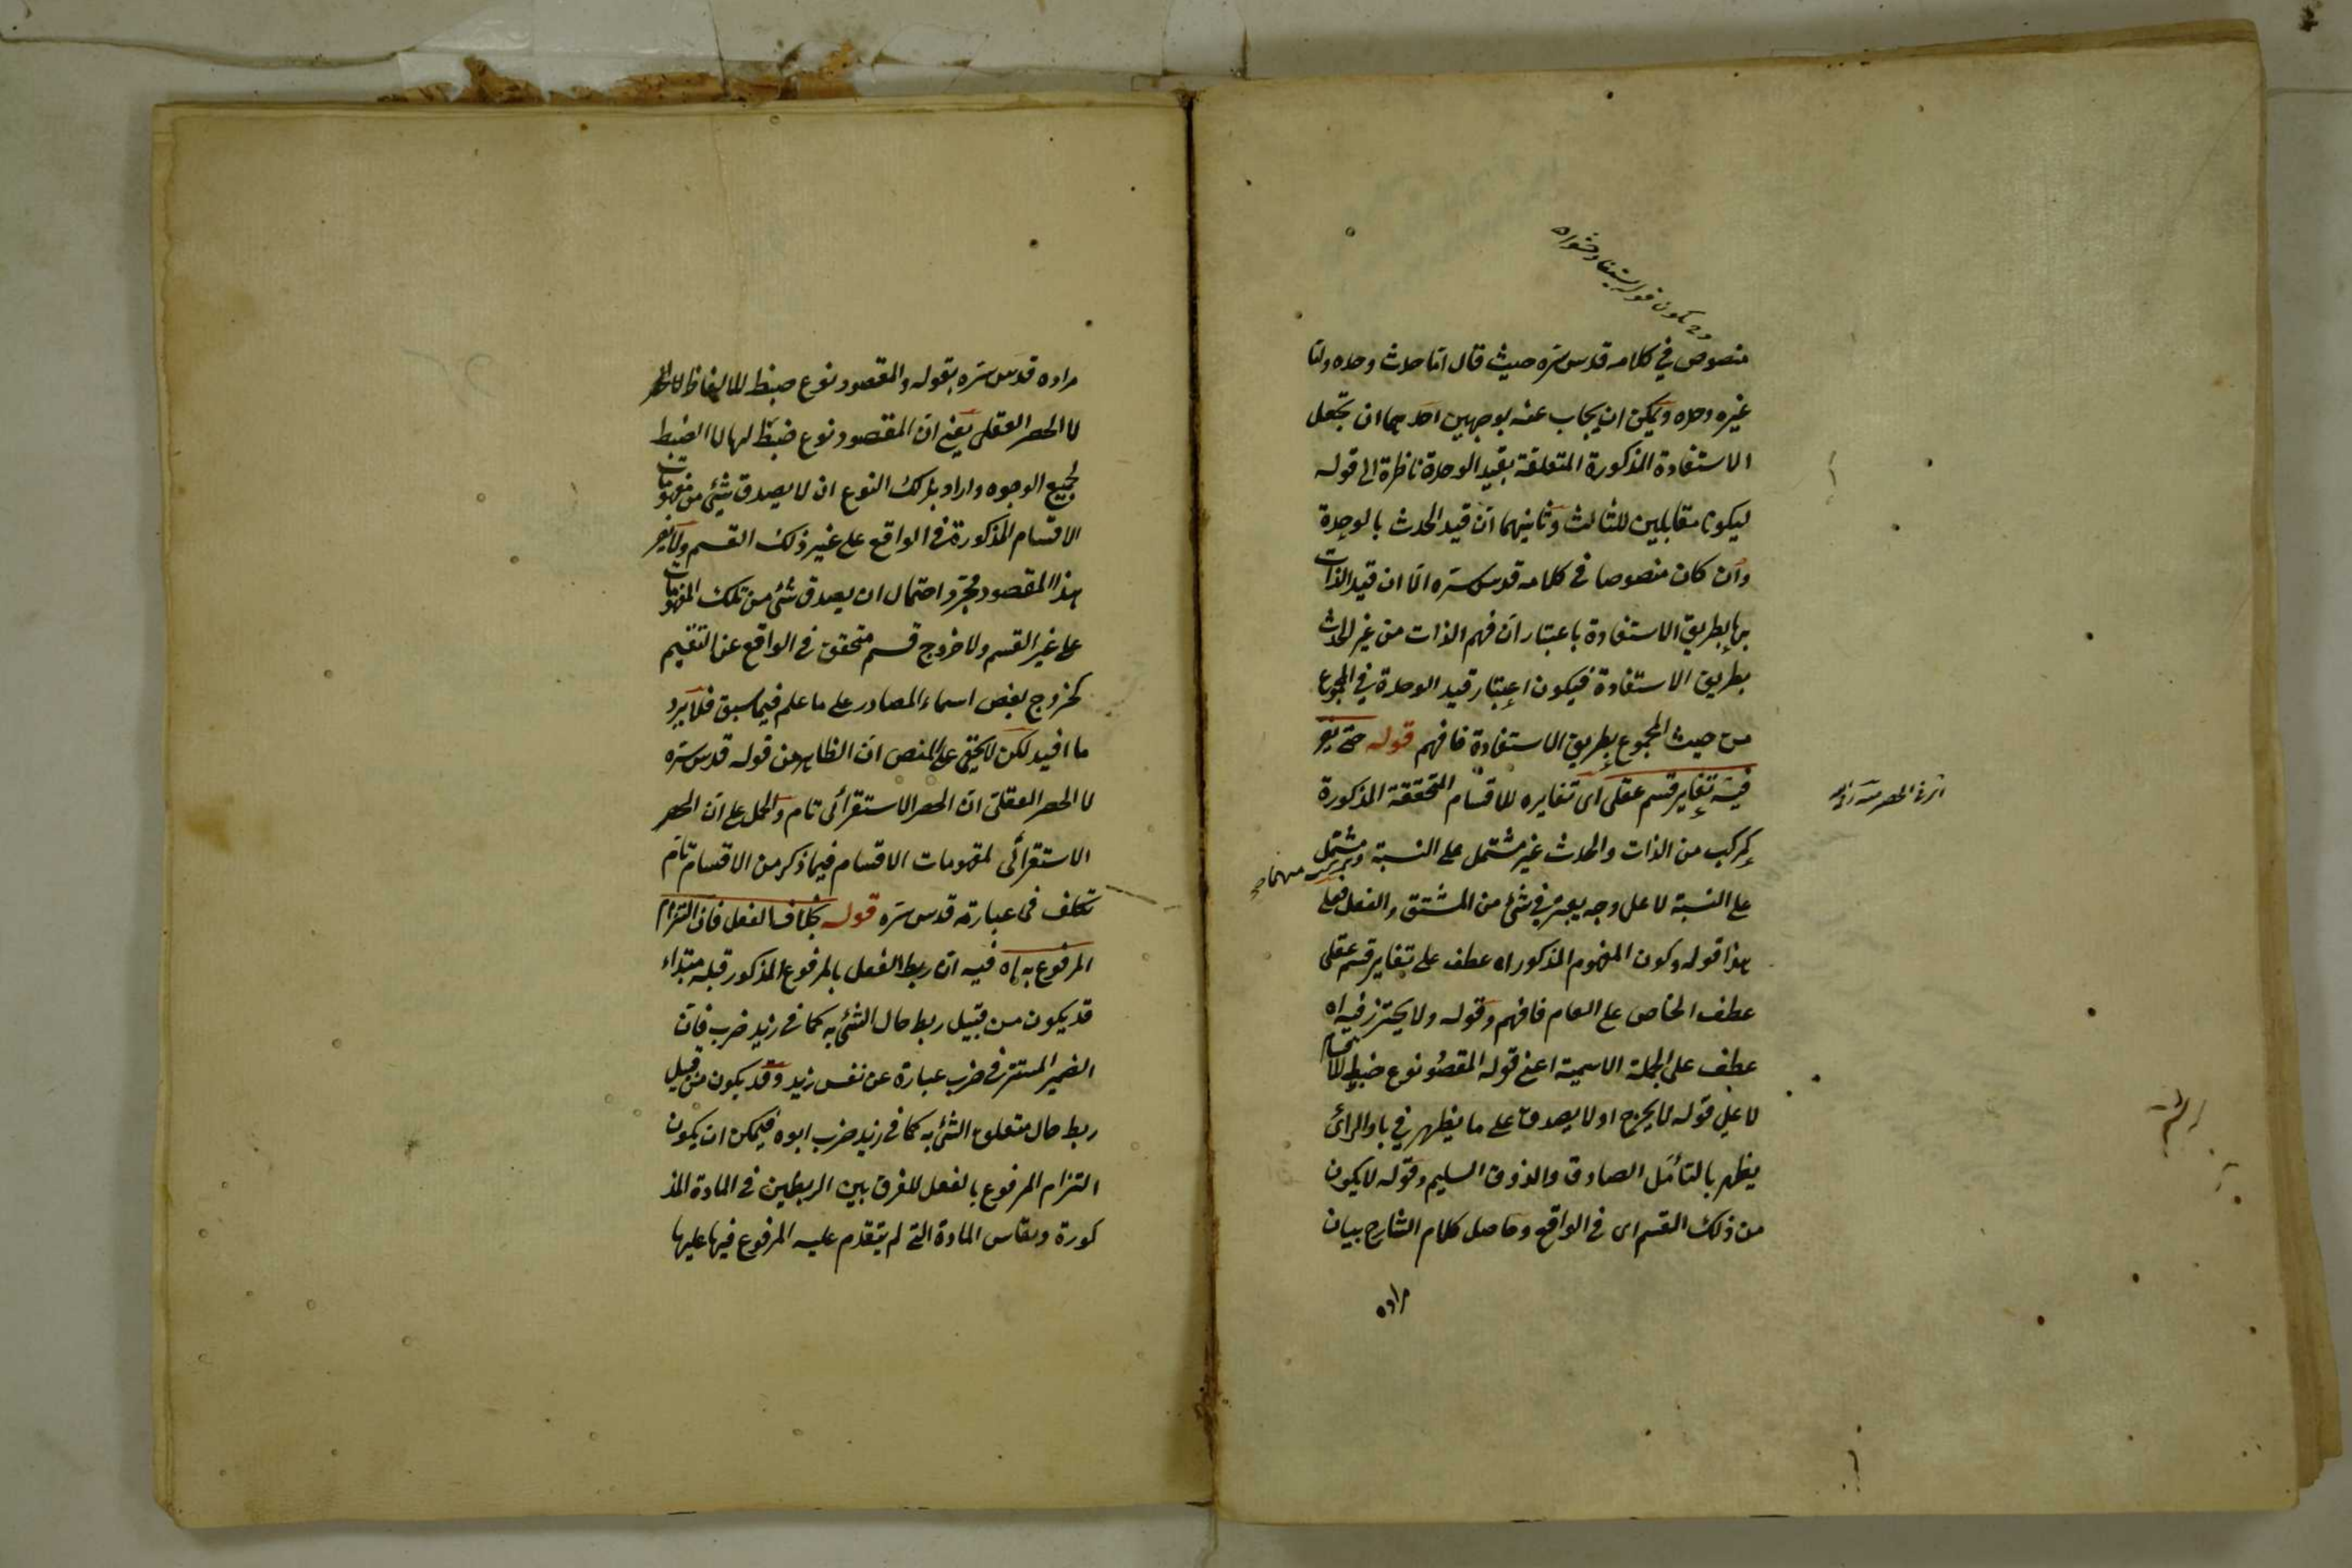 منصوص في كلامه قدس سره حيث قال اما حدث وحده واما
غيره وحده ويمكن ان يجاب عنه بوجهين احدهما ان تجعل
الاستفادة المذكورة المتعلقة بقيد الوحدة ناظرة الى قوله
ليكونا مقابلين للثالث وثانيهما ان قيد الحدث بالوحدة
وان كان منصوصا في كلامه قدس سره الا ان قيد الذات
بها بطريق الاستفادة باعتبار ان فهم الذات من غير الحدث
بطريق الاستفادة فيكون اعتبار قيد الوحدة في المجموع
من حيث المجموع بطريق الاستفادة فافهم قوله حتى يضر
فيه تغاير قسم عقلى اى تغايره للاقسام المتحققة المذكورة
كمركب من الذات والحدث غير مشتمل على النسبة مشتمل
على النسبة لا على وجه يعتبر في شئ من المشتق والفعل فعلى
هذا قوله وكون المفهوم المذكور اه عطف على تغاير قسم عقلى
عطف الخاص على العام فافهم وقوله ولا يحترز فيه اه
عطف على الجملة الاسمية اعنى قوله المقصود نوع ضبط للاقسام
لا على قوله لا يخرج او لا يصدق على ما يظهر في بادالرائ
يظهر بالتأمل الصادق والذوق السليم وقوله لا يكون
من ذلك القسم اى فى الواقع وحاصل كلام الشارح بيان
مراده
مراده قدس سره بقوله والمقصود نوع ضبط للالفاظ
لا الحصر العقلى يعنى ان المقصود نوع ضبط لها لا الضبط
لجميع الوجوه واراد بذلك النوع ان لا يصدق شئ من مفهومات
الاقسام المذكورة فى الواقع على غير ذلك القسم ولا يضر
هذا المقصود مجرد احتمال ان يصدق شئ من تلك المفهومات
على غير القسم ولا خروج قسم متحقق فى الواقع عن التقسيم
كخروج بعض اسماء المصادر على ما علم فيما سبق فلا يرد
ما افيد لكن لا يخفى على المنصف ان الظاهر من قوله قدس سره
لا الحصر العقلى ان الحصر الاستقرائى تام والحمل على ان الحصر
الاستقرائى لمفهومات الاقسام فيما ذكر من الاقسام تام
تكلف فى عبارته قدس سره قوله بخلاف الفعل فان التزام
المرفوع به اه فيه ان ربط الفعل بالمرفوع المذكور قبله مبتداء
قد يكون من قبيل ربط حال الشئ به كما فى زيد ضرب فان
الضمير المستتر فى ضرب عبارة عن نفس زيد وقد يكون من قبيل
ربط حال متعلق الشئ به كما فى زيد ضرب ابوه فيمكن ان يكون
التزام المرفوع بالفعل للفرق بين الربطين فى المادة المذ
كورة ويقاس المادة التى لم يتقدم عليه المرفوع فيها عليها